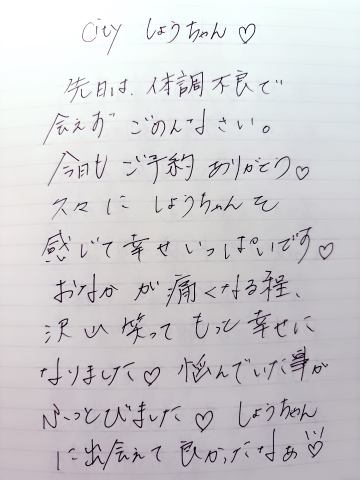 city しょうちゃん♡
先日は、体調不良で
会えず ごめんなさい。
今日も ご予約 ありがとう♡
久々に しょうちゃんを
感じて幸せいっぱいです♡
おなか が 痛くなる程、
沢山 笑って もっと 幸せに
なりました♡ 悩んでいた事が
ふっとびました♡ しょうちゃん
に出会えて 良かったなぁ♡